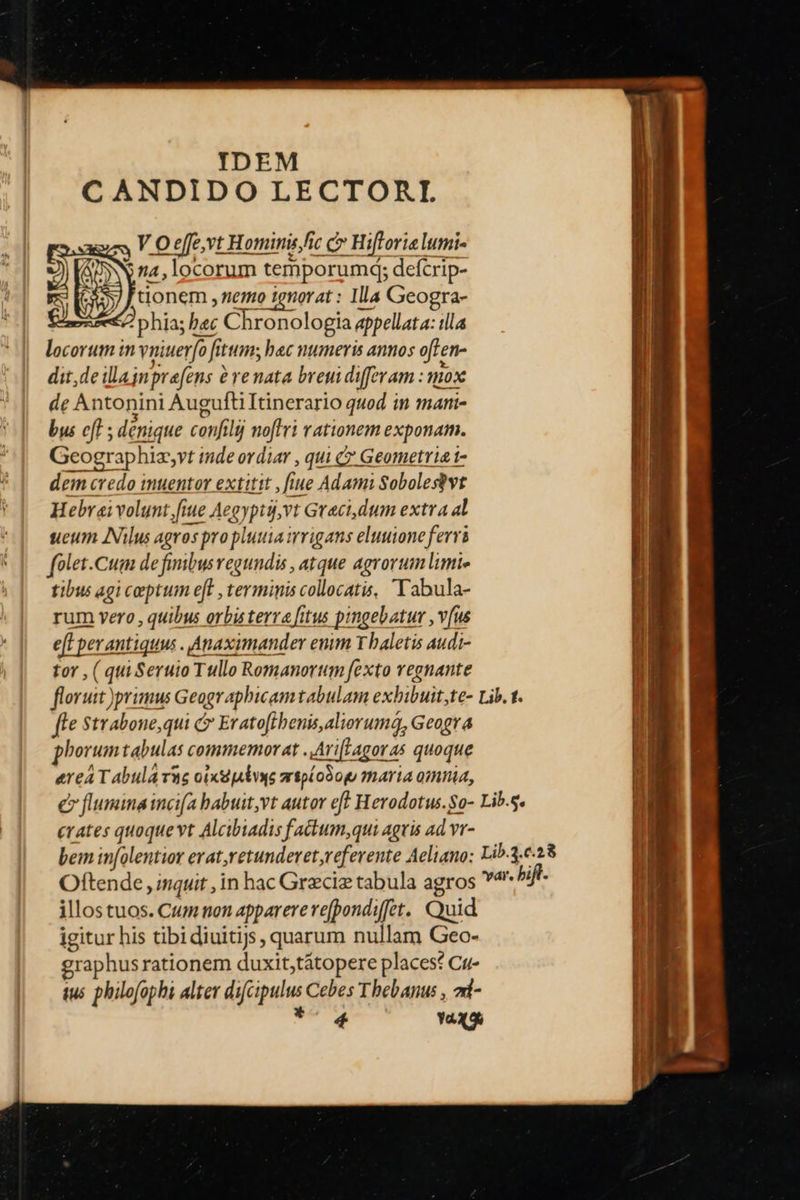 IDEM
CANDIDO LECTORI.
VO eſſe,vt Hominis,ſic & Hiſtoriælumi-
na, locorum temporumq; deſcrip-
tionem, nemo ignorat: Illa Geogra-
phia; hæc Chronologia appellata: illa
locorum in vniuerſo ſitum; hæc numeris annos oſten-
dit,de illa inpræſens è re nata breui differam: mox
de Antonini Auguſti Itinerario quod in mani-
bus eſt; denique conſilij noſtri rationem exponam.
Geographiæ,vt inde ordiar, qui & Geometriæ i-
dem credo inuentor extitit, ſiue Adami Soboles,vt
Hebræi volunt,ſiue Aegyptij,vt Græci,dum extra al
ueum Nilus agros pro pluuia irrigans eluuione ferri
ſolet.Cum de finibus regundis, atque agrorum limi-
tibus agi cœptum eſt, terminis collocatis. Tabula-
rum vero, quibus orbis terræ ſitus pingebatur, vſus
eſt perantiquus. Anaximander enim Thaletis audi-
tor, (qui Seruio Tullo Romanorum ſexto regnante
floruit)primus Geographicam tabulam exhibuit,te- Lib. 1.
ſte Strabone,qui & Eratoſthenis,aliorumq, Geogra
phorum tabulas commemorat. Ariſtagoras quoque
æreâ Tabulâ τῆς οἰκουμένης περίοδον maria omnia,
& flumina inciſa habuit,vt autor eſt Herodotus. So- Lib.5.
crates quoque vt Alcibiadis factum,qui agris ad vr-
bem inſolentior erat,retunderet,referente Aeliano: Lib.3.c.28
Oſtende, inquit, in hac Græciæ tabula agros var. hiſt.
illos tuos. Cum non apparere reſpondiſſet. Quid
igitur his tibi diuitijs, quarum nullam Geo-
graphus rationem duxit,tātopere places? Cu-
ius philoſophi alter diſcipulus Cebes Thebanus, πί-
* 4 ναξ